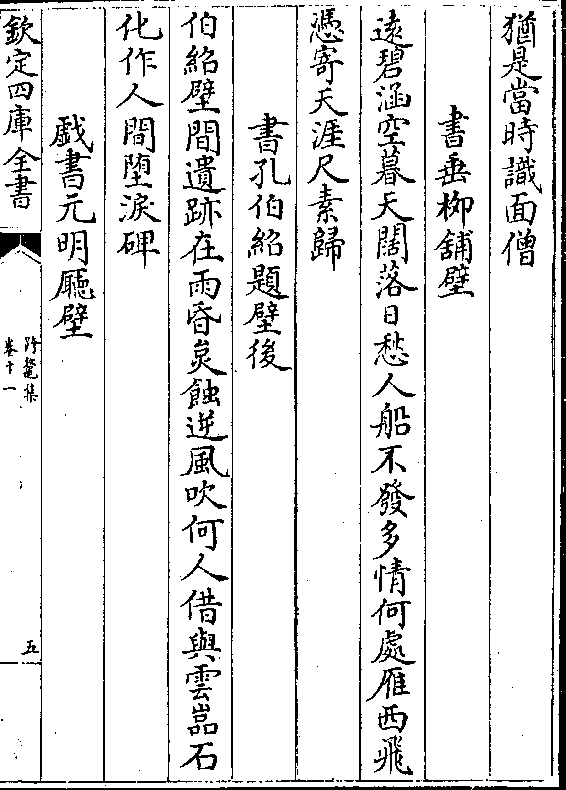 猶是當時識面僧
書垂柳舖壁
遠碧涵空暮天闊落日愁人船不發多情何處雁西飛
憑寄天涯尺素歸
書孔伯紹題壁後
伯紹壁間遺跡在雨昏炱蝕逆風吹何人借與雲嵓石
化作人間堕淚碑
戯書元明廳壁
欽定四庫全書
跨鼇集
卷十一
五